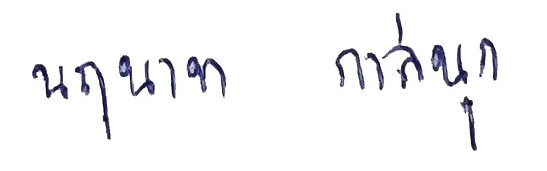 นฤนาท กาล่นุก